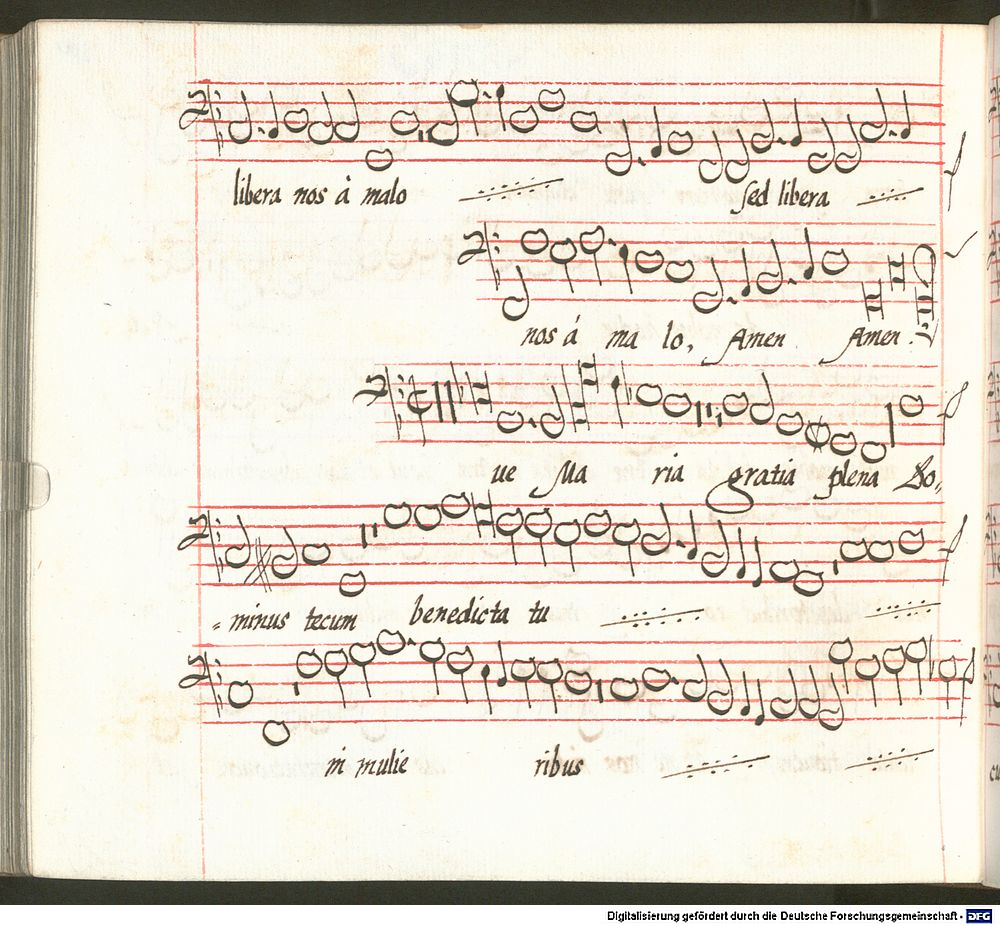 libera nos à malo sed libera
nos á ma lo, Amen Amen.
ue Ma ria gratia plena Do„
„ minus tecum benedicta tu
in mulie ribus
Digitalisierung gefördert durch die Deutsche Forschungsgemeinschaft - DFG